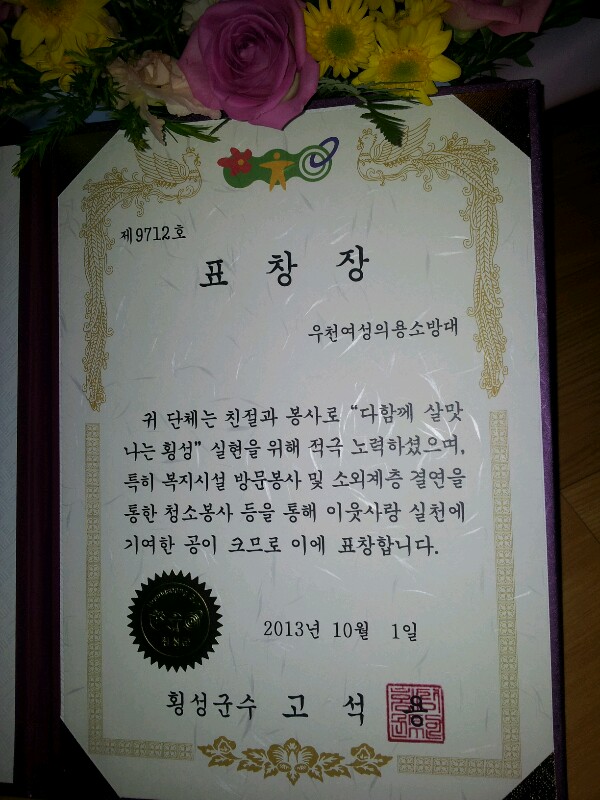 제9712호
표 창 장
우천여성의용소방대
귀 단체는 친절과 봉사로 "다함께 살맛
나는 횡성" 실현을 위해 적극 노력하셨으며,
특히 복지시설 방문봉사 및 소외계층 결연을
통한 청소봉사 등을 통해 이웃사랑 실천에
기여한 공이 크므로 이에 표창합니다.
2013년 10월 1일
횡성군수 고 석 용